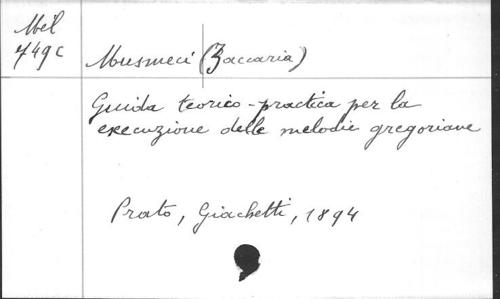 Mel
749c
Musmeci (Zaccaria)
Guida teorico-practica per la
execuzione delle melodie gregoriane
Prato, Giachetti, 1894